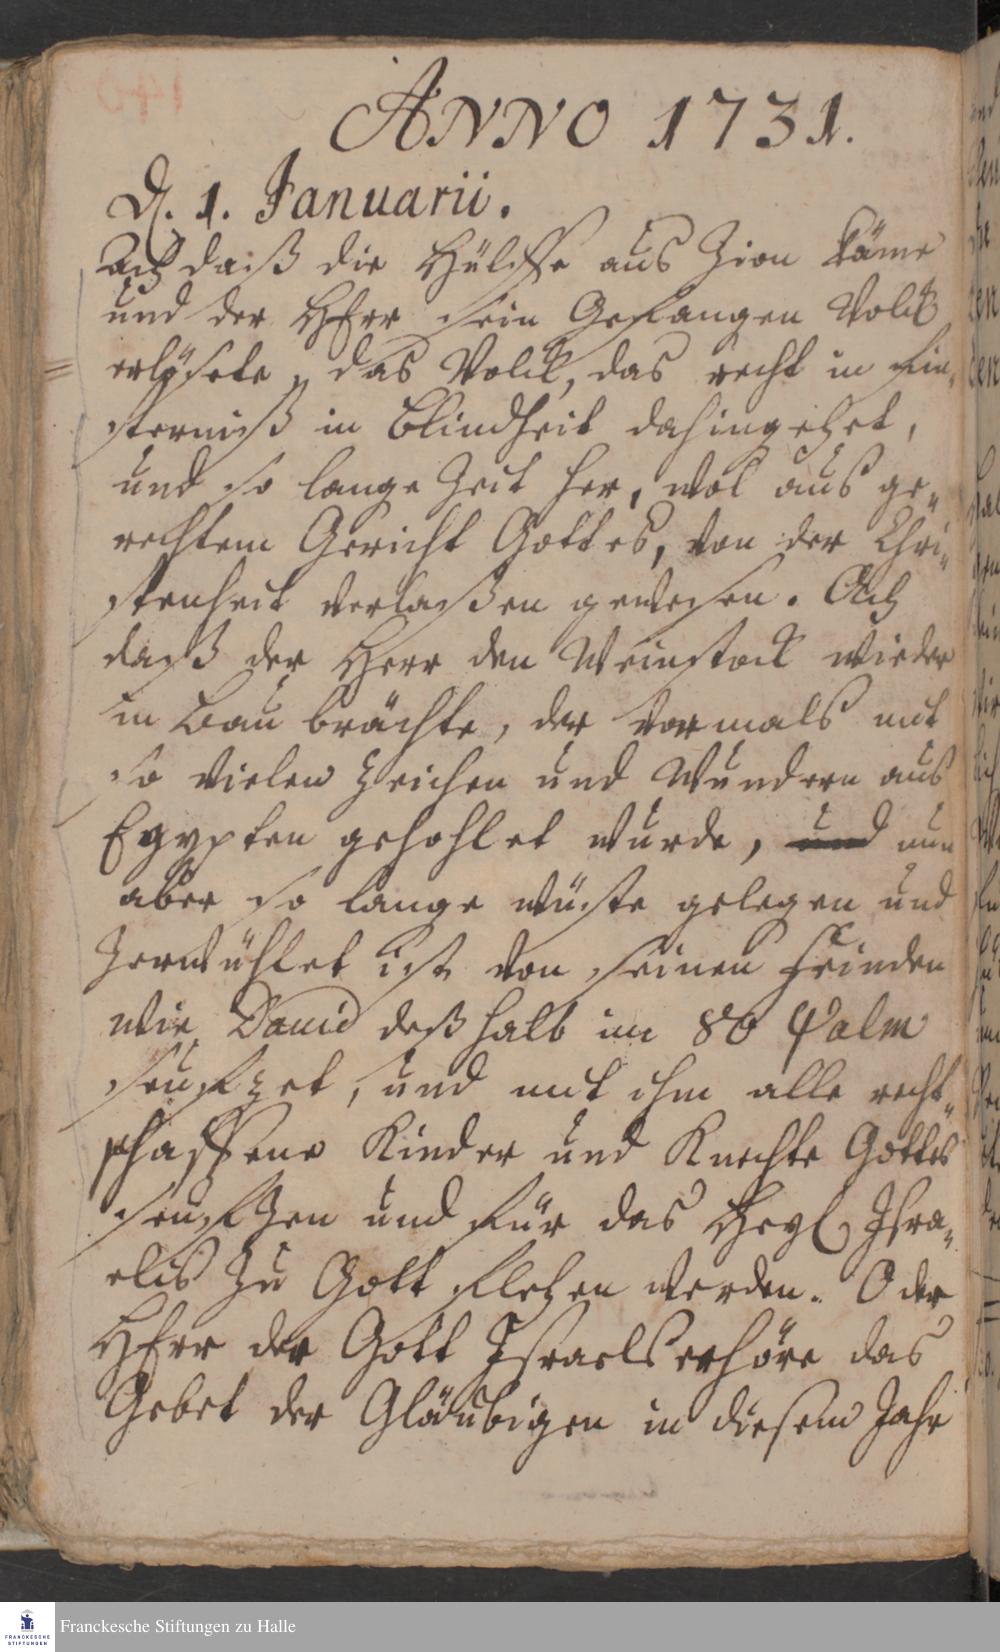 ANNO 1731.
D. 1. Januarii.
Ach daß die Hülffe aus Zion käme
und der HErr sein Gefangen Volck
erlösete, das Volck, das recht in Fin-
sterniß in Blindheit dahingehet,
und so lange Zeit her, wol aus ge-
rechtem Gericht Gottes, von der Chri-
stenheit verlaßen gewesen. Ach
daß der Herr den Weinstock wieder
in Bau brächte, der vormals mit
so vielen Zeichen und Wundern aus
Egypten gehohlet wurde, und nun
aber so lange wüste gelegen und
Zerwühlet ist von seinen Feinden
wie David deßhalb im 80 Psalm
seufzet, und mit ihm alle recht-
schaffene Kinder und Knechte Gottes
seufzen und für das Heyl Isra-
elis zu Gott flehen werden. O der
HErr der Gott Israels erhöre das
Gebet der Gläubigen in diesem Jahr
FRANCKESCHE STIFTUNGEN
Franckesche Stiftungen zu Halle